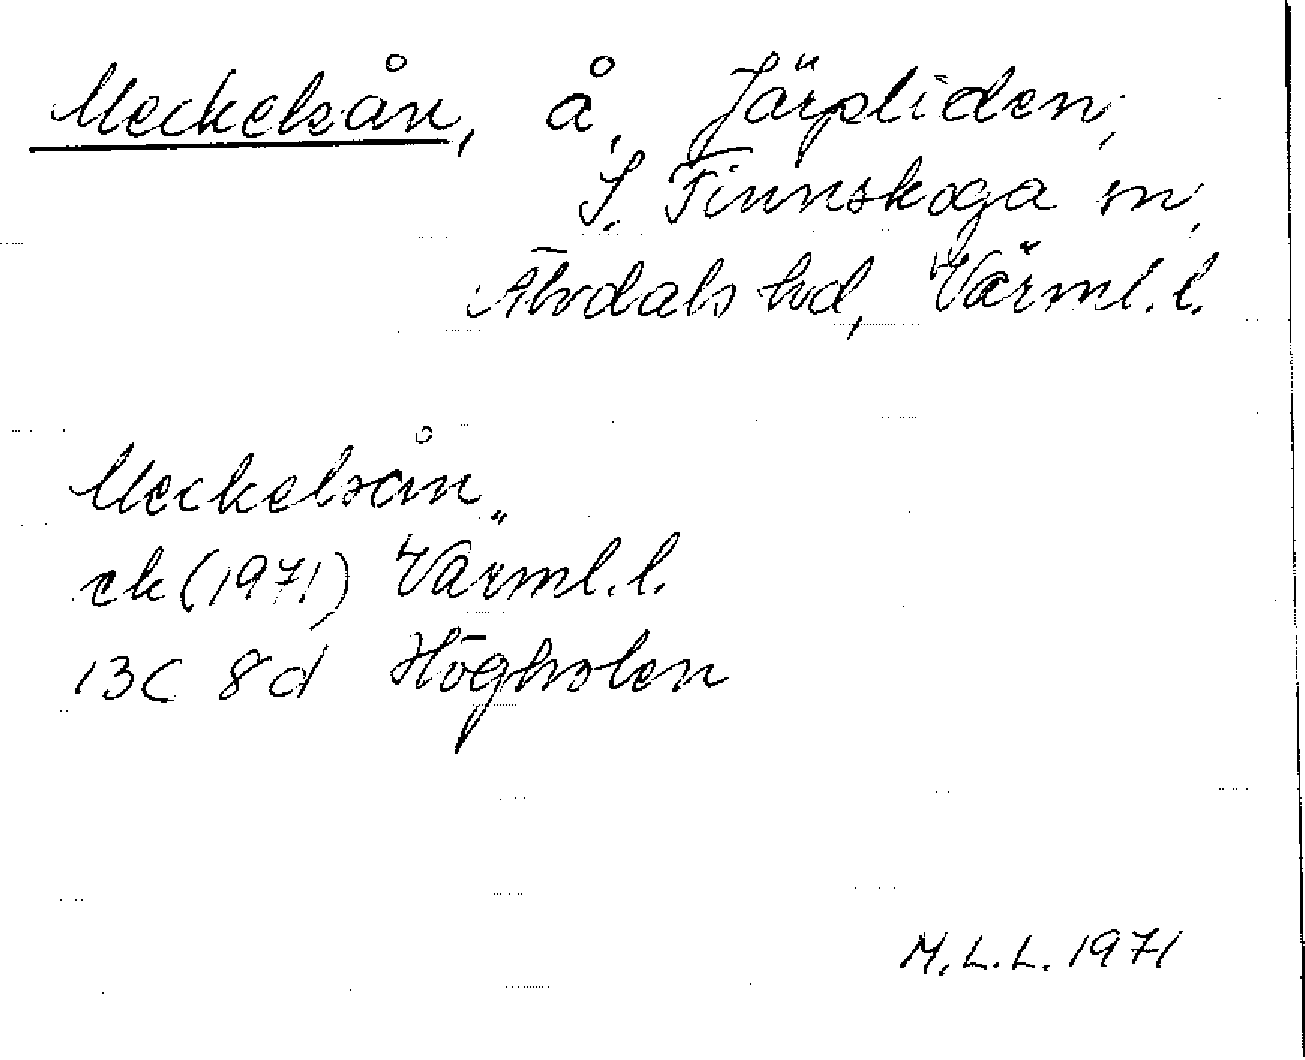 Meckelsån, å, Järpliden,
S. Finnskoga sn,
Älvdals hd, Värml. l.
Meckelsån
ek (1971) Värml. l.
13C 8d Högholen
M.L.L. 1971